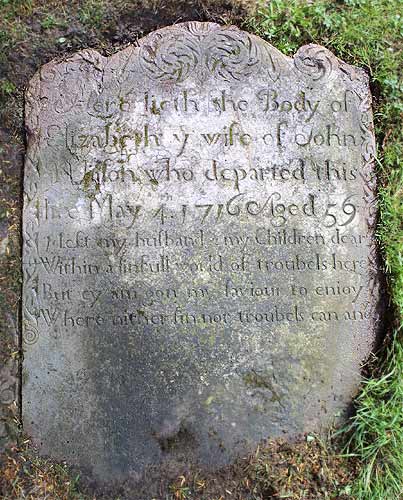 Here lieth the Body of
Elizabeth y wife of John
who departed this
life May 4. 1716 Aged 59
I left my husband & my Children dear
Within a sinfull world of troubels here
But ey am gon my saviour to enjoy
Where nither sin not troubels can